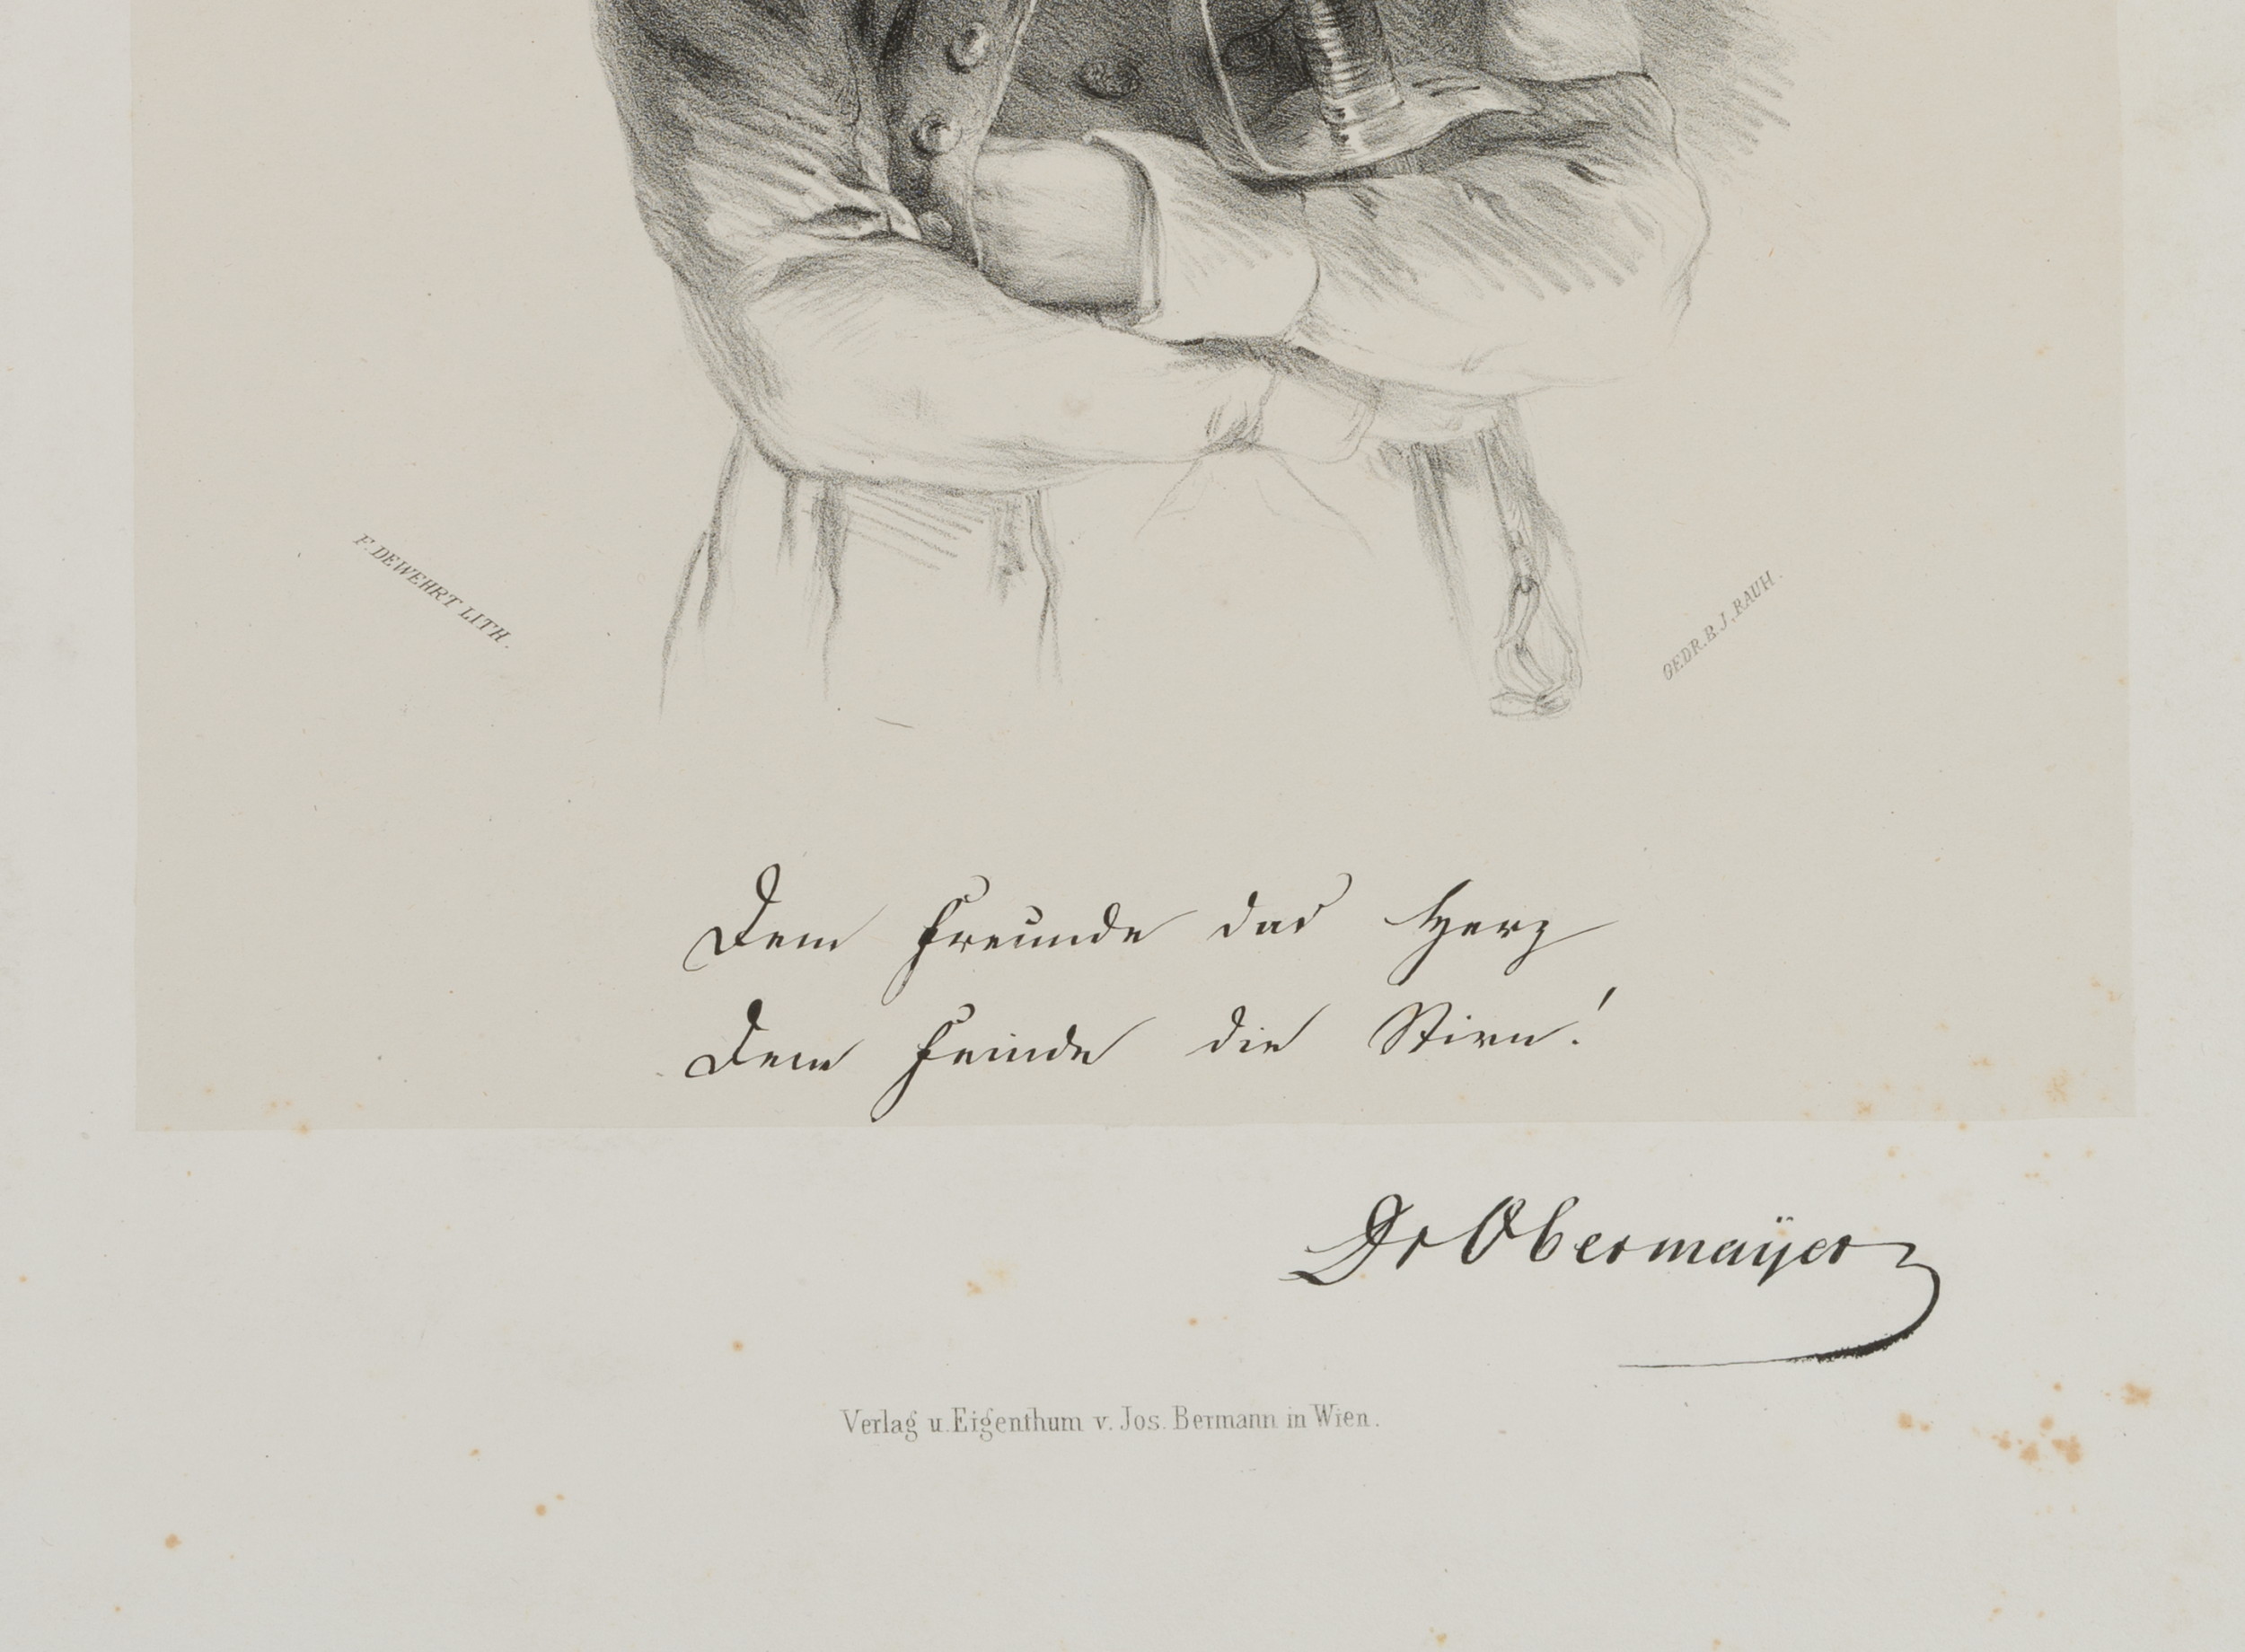 F. DEWEHRT LITH.
GEDR. B. J. RAUH.
Dem Freunde das Herz
Dem Feinde die Stirn!
Dr Obermaÿer
Verlag u. Eigenthum v. Jos. Bermann in Wien.